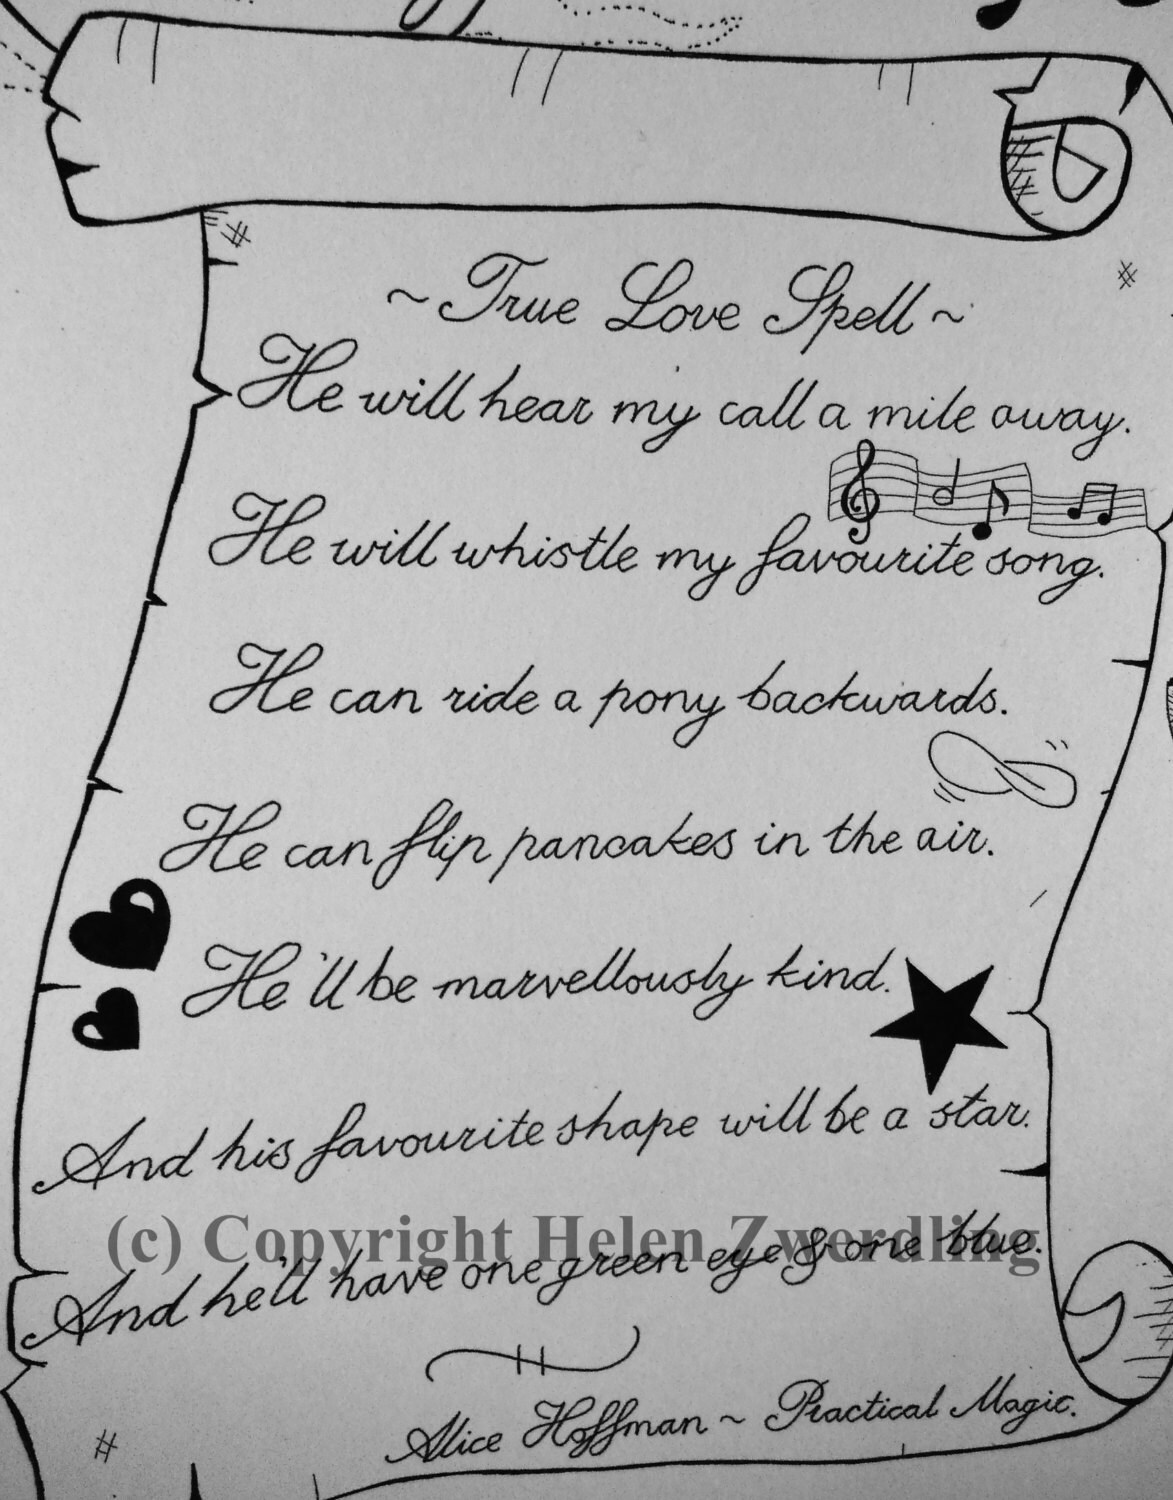 ~ True Love Spell ~
He will hear my call a mile away.
He will whistle my favourite song.
He can ride a pony backwards.
He can flip pancakes in the air.
He'll be marvellously kind.
And his favourite shape will be a star.
(c) Copyright Helen Zwerdling
And he'll have one green eye & one blue.
Alice Hoffman ~ Practical Magic.